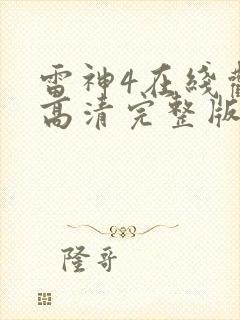 雷神4在线
高清完整版
隆哥